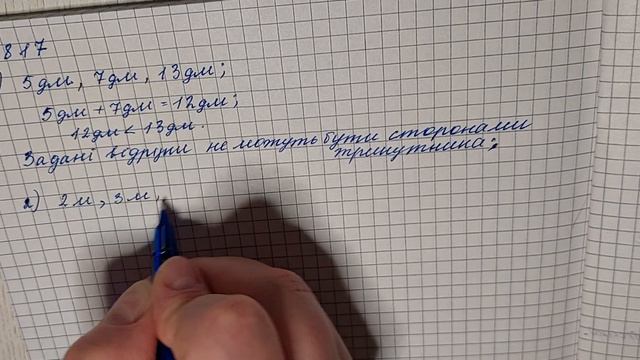 817
) 5дм, 7дм, 13дм;
5дм + 7дм = 12дм;
12дм < 13дм.
Задані відрізки не можуть бути сторонами
трикутника;
2) 2м, 3м,